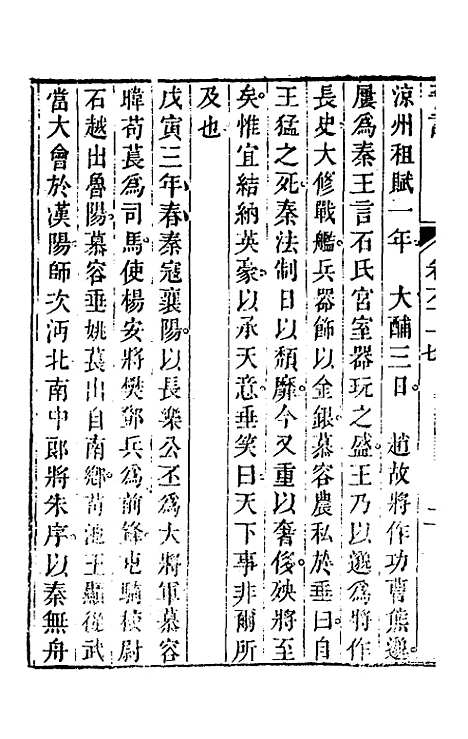 涼州租賦一年　大酺三日　趙故將作功曹熊邈
屢為秦王言石氏宮室器玩之盛王乃以邈為將作
長史大修戰艦兵器飾以金銀慕容農私於垂曰自
王猛之死秦法制日以頹靡今又重以奢侈殃將至
矣惟宜結納英豪以承天意垂笑曰天下事非爾所
及也
戊寅三年春秦寇襄陽以長樂公丕為大將軍慕容
暐苟萇為司馬使楊安將樊鄧兵為前鋒屯騎校尉
石越出魯陽慕容垂姚萇出自南鄉苟池王顯從武
當大會於漢陽師次沔北南中郎將朱序以秦無舟